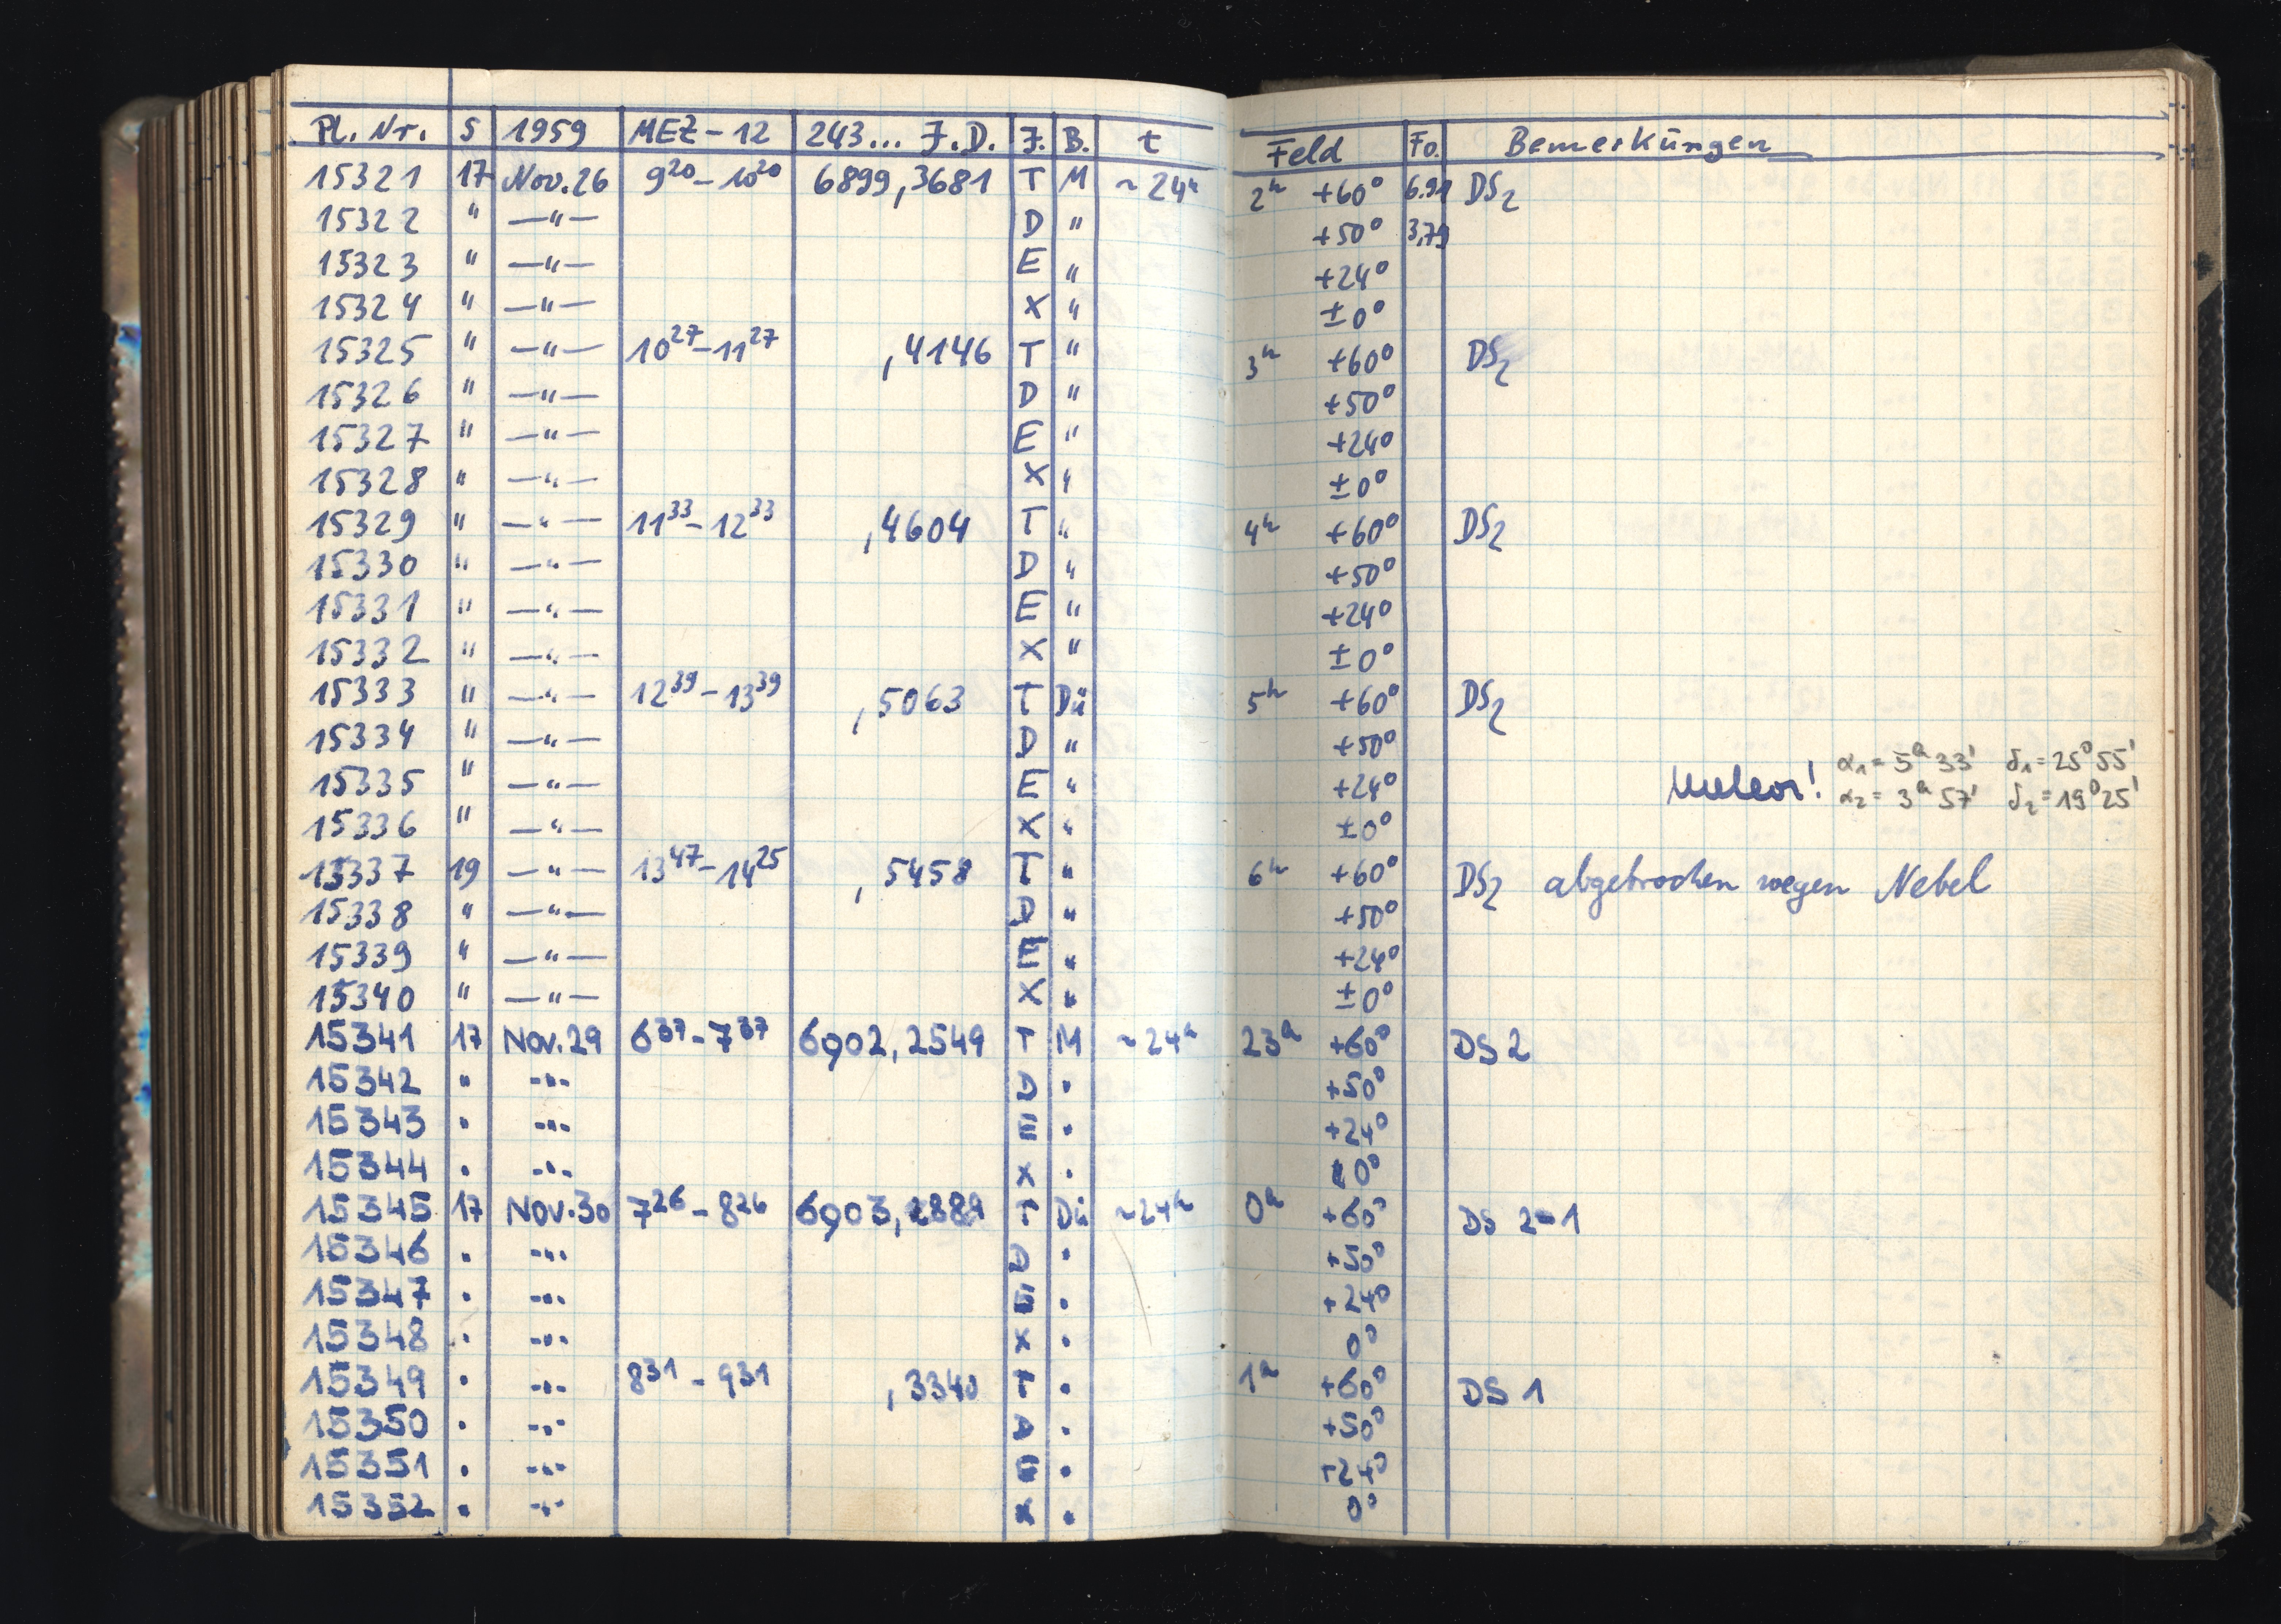 Pl. Nr. S 1959 MEZ-12 243... J.D. J. B. t Feld Fo. Bemerkungen
15321 17 Nov.26 9²⁰-10²⁰ 6899,3681 T M ~24ʰ 2ʰ +60° 6.91 DS₂
15322 " —"— D " +50° 3,79
15323 " —"— E " +24°
15324 " —"— X " ±0°
15325 " —"— 10²⁷-11²⁷ ,4146 T " 3ʰ +60° DS₂
15326 " —"— D " +50°
15327 " —"— E " +24°
15328 " —"— X " ±0°
15329 " —"— 11³³-12³³ ,4604 T " 4ʰ +60° DS₂
15330 " —"— D " +50°
15331 " —"— E " +24°
15332 " —"— X " ±0°
15333 " —"— 12³⁹-13³⁹ ,5063 T Dü 5ʰ +60° DS₂
15334 " —"— D " +50°
α₁= 5ʰ 33' δ₁=25°55'
15335 " —"— E " +24° Meteor! α₂= 3ʰ 57' δ₂=19°25'
15336 " —"— X " ±0°
15337 19 —"— 13⁴⁷-14²⁵ ,5458 T " 6ʰ +60° DS₂ abgebrochen wegen Nebel
15338 " —"— D " +50°
15339 " —"— E " +24°
15340 " —"— X " ±0°
15341 17 Nov.29 6³⁷-7³⁷ 6902,2549 T M ~24ʰ 23ʰ +60° DS 2
15342 " -"- D " +50°
15343 " -"- E " +24°
15344 " -"- X " 0°
15345 17 Nov.30 7²⁶-8²⁶ 6903,2889 T Dü ~24ʰ 0ʰ +60° DS 2-1
15346 " -"- D " +50°
15347 " -"- E " +24°
15348 " -"- X " 0°
15349 " -"- 8³¹-9³¹ ,3340 T " 1ʰ +60° DS 1
15350 " -"- D " +50°
15351 " -"- E " +24°
15352 " -"- X " 0°